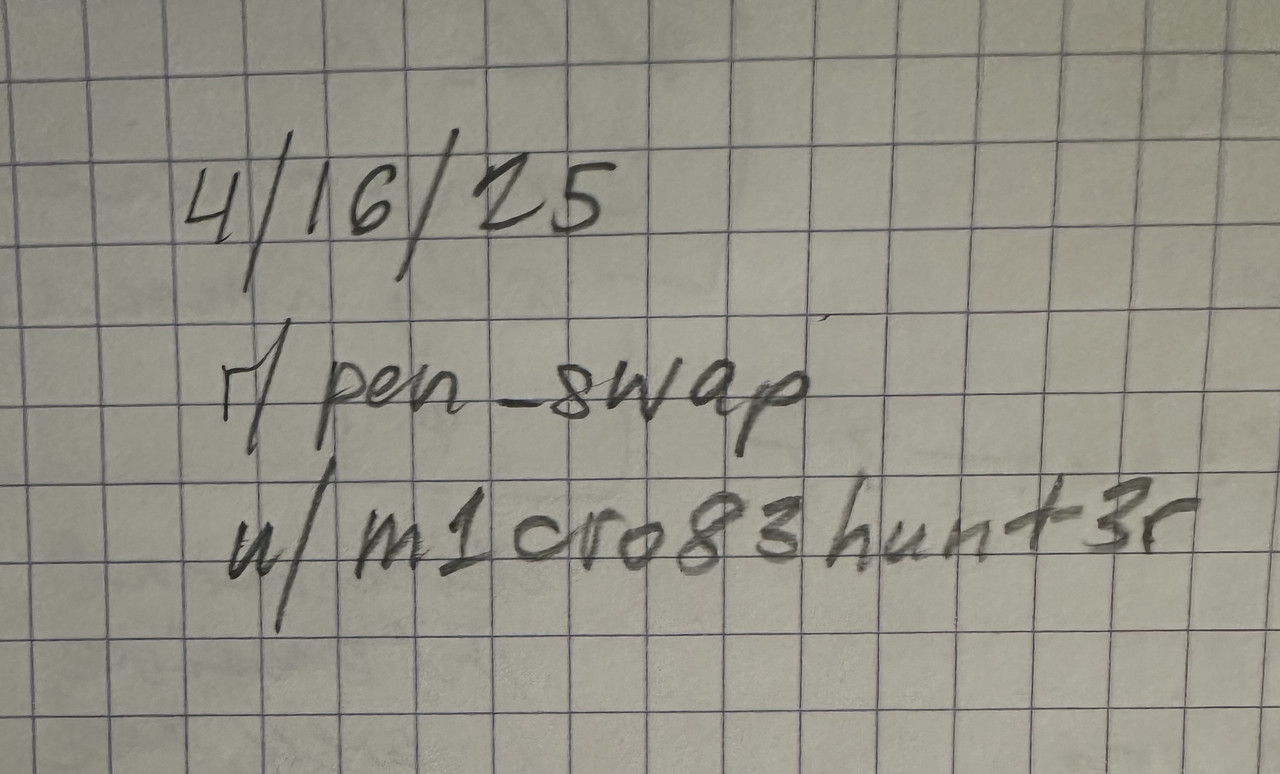 4/16/25
r/pen_swap
u/m1cro83hunt3r